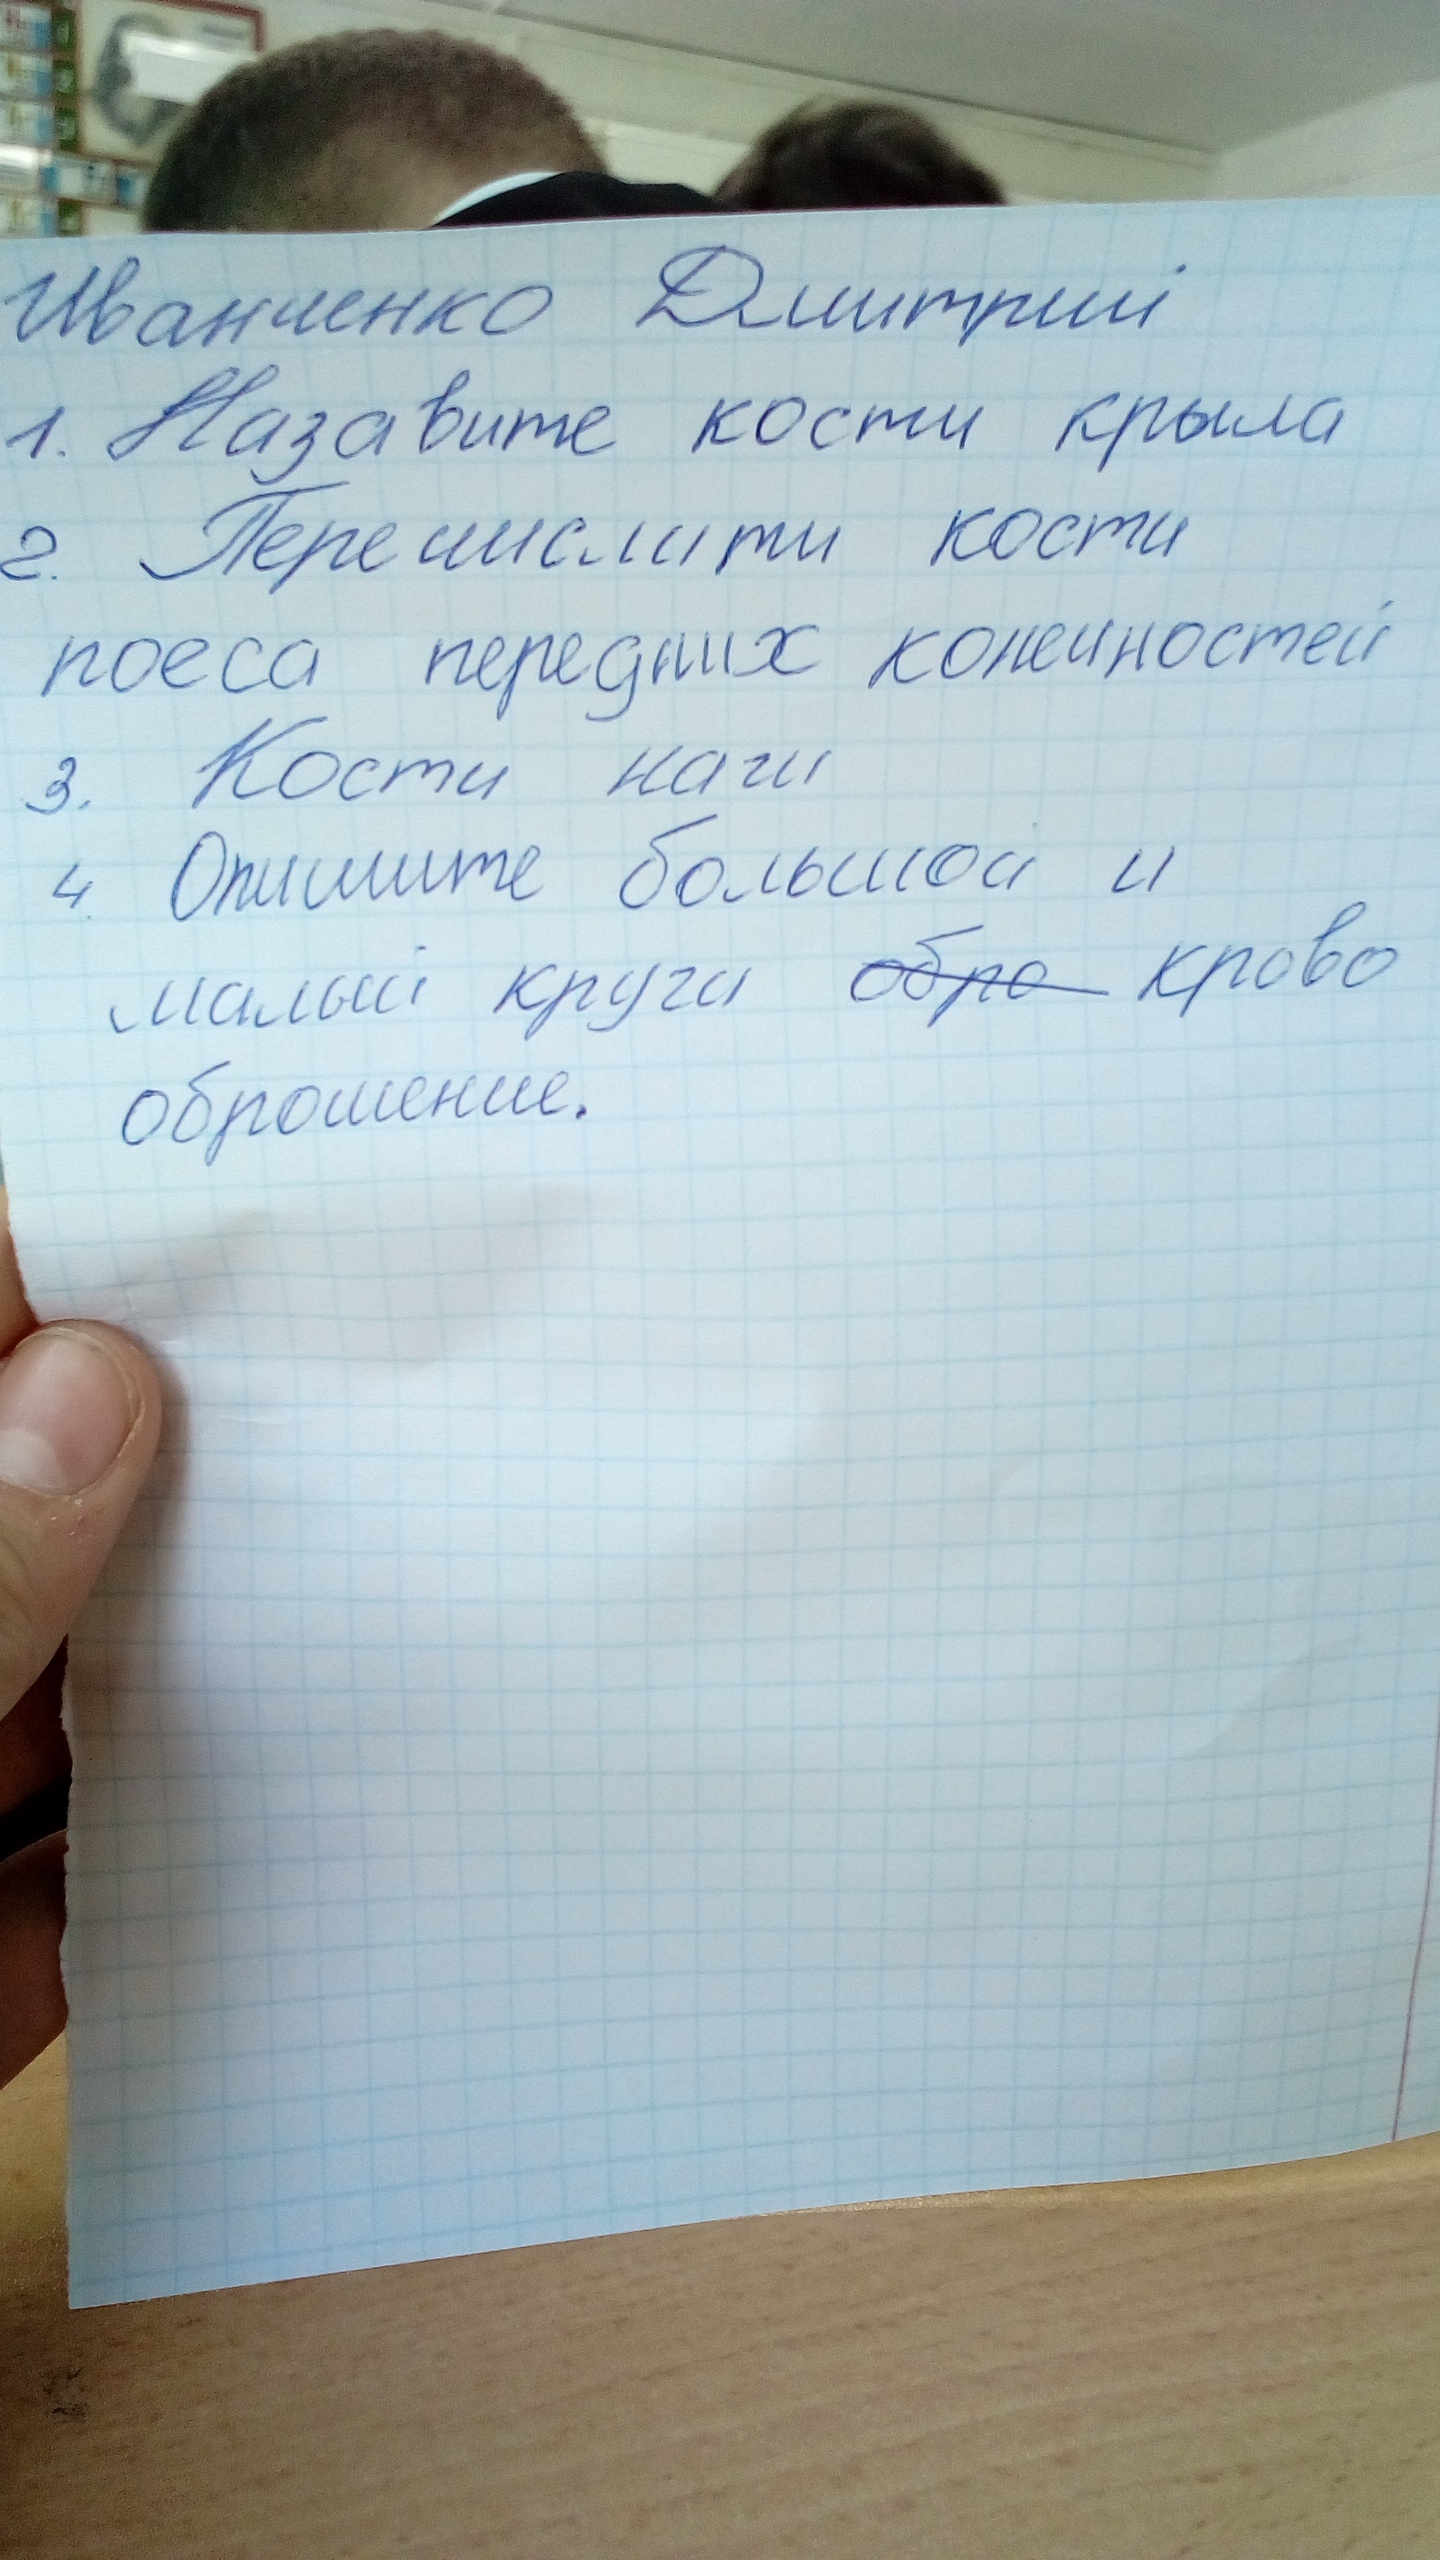 Иванченко Дмитрий
1. Назавите кости крыла
2. Перечислити кости
поеса передних конечностей
3. Кости наги
4. Опишите большой и
малый круги обро крово
оброшение.